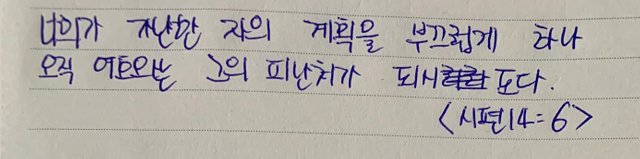 너희가 가난한 자의 계획을 부끄럽게 하나
오직 여호와는 그의 피난처가 되시도다.
<시편14:6>